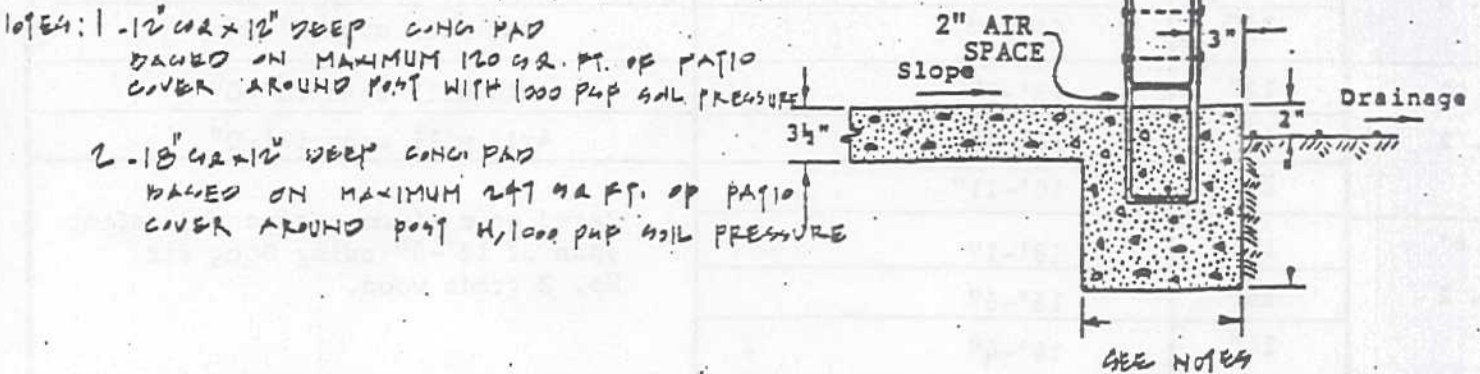 NOTES: 1 - 12" SQ x 12" DEEP CONC. PAD
BASED ON MAXIMUM 120 SQ. FT. OF PATIO
COVER AROUND POST WITH 1000 PSF SOIL PRESSURE
2 - 18" SQ x 12" DEEP CONC. PAD
BASED ON MAXIMUM 247 SQ FT. OF PATIO
COVER AROUND POST W/1000 PSF SOIL PRESSURE
2" AIR
SPACE
Slope
3½"
3"
2"
Drainage
SEE NOTES